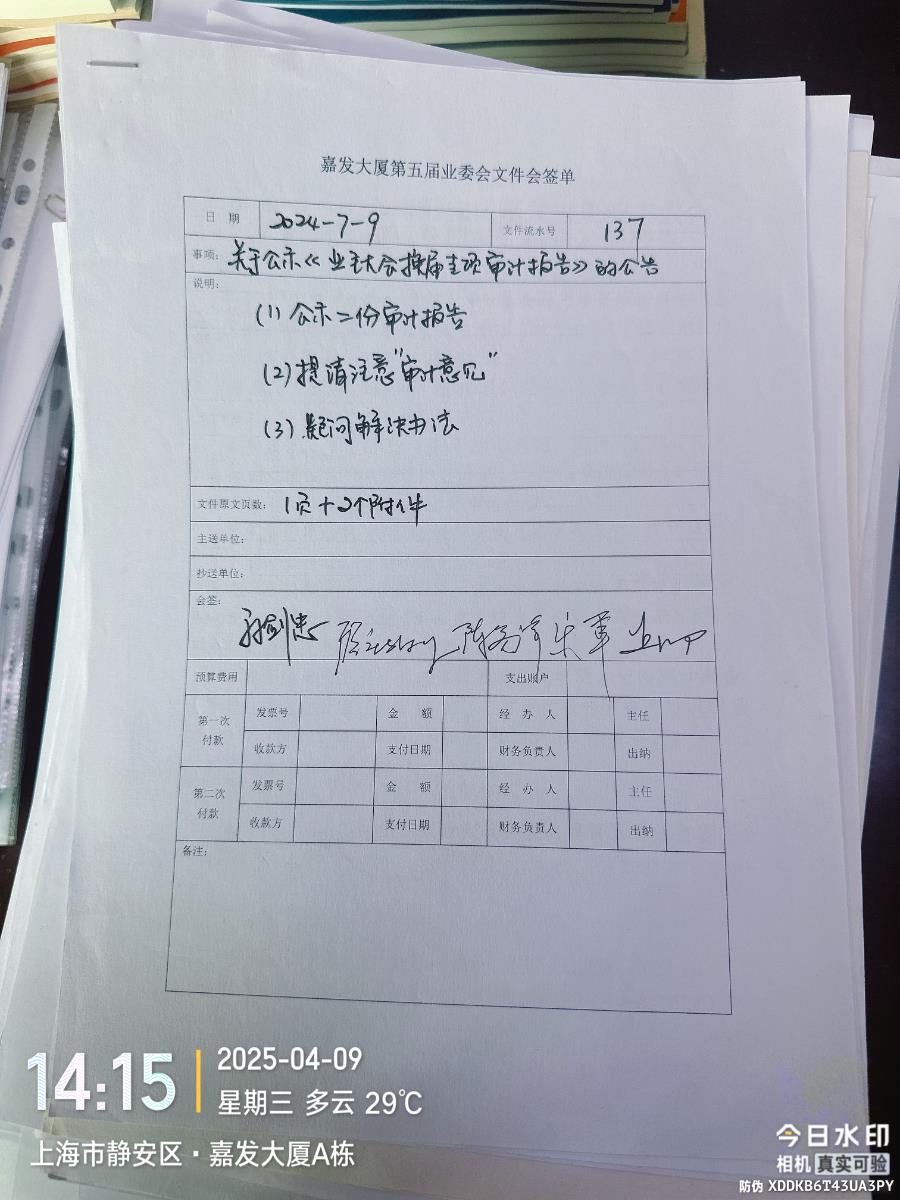 嘉发大厦第五届业委会文件会签单
日 期 2024-7-9 文件流水号 137
事项: 关于公示《业主大会换届专项审计报告》的公告
说明:
(1) 公示二份审计报告
(2) 提请注意"审计意见"
(3) 疑问解决办法
文件原文页数: 1页+2个附件
主送单位:
抄送单位:
会签:
预算费用 支出账户
第一次付款 发票号 金 额 经 办 人 主任
收款方 支付日期 财务负责人 出纳
第二次付款 发票号 金 额 经 办 人 主任
收款方 支付日期 财务负责人 出纳
备注:
14:15 2025-04-09
星期三 多云 29℃
上海市静安区·嘉发大厦A栋
今日水印
相机 真实可验
防伪 XDDKB6T43UA3PY